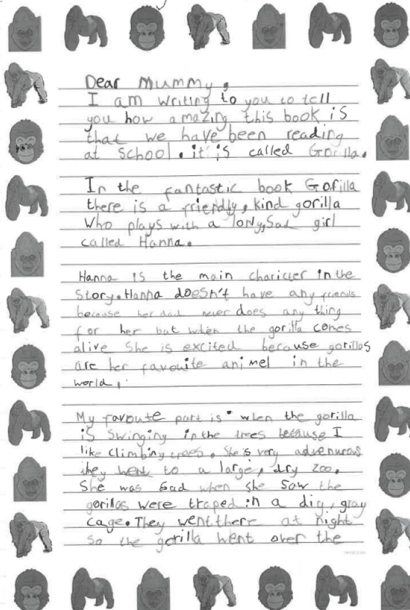 Dear Mummy.
I am writing to you to tell
you how amazing this book is
that we have been reading
at school. it is called Gorilla.
In the fantastic book Gorilla
there is a friendly, kind gorilla
who plays with a lonly, sad girl
called Hanna.
Hanna is the main charicter in the
Story. Hanna doesn't have any friends
because her dad never does any thing
for her but when the gorilla comes
alive she is excited because gorillas
are her favouite animel in the
world.
My favoute part is when the gorilla
is swinging in the trees because I
like climbing trees. She is very adventurous
they went to a large, dry zoo.
She was sad when she saw the
gorillas were traped in a dig, gray
cage. They went there at night
so the gorilla went over the